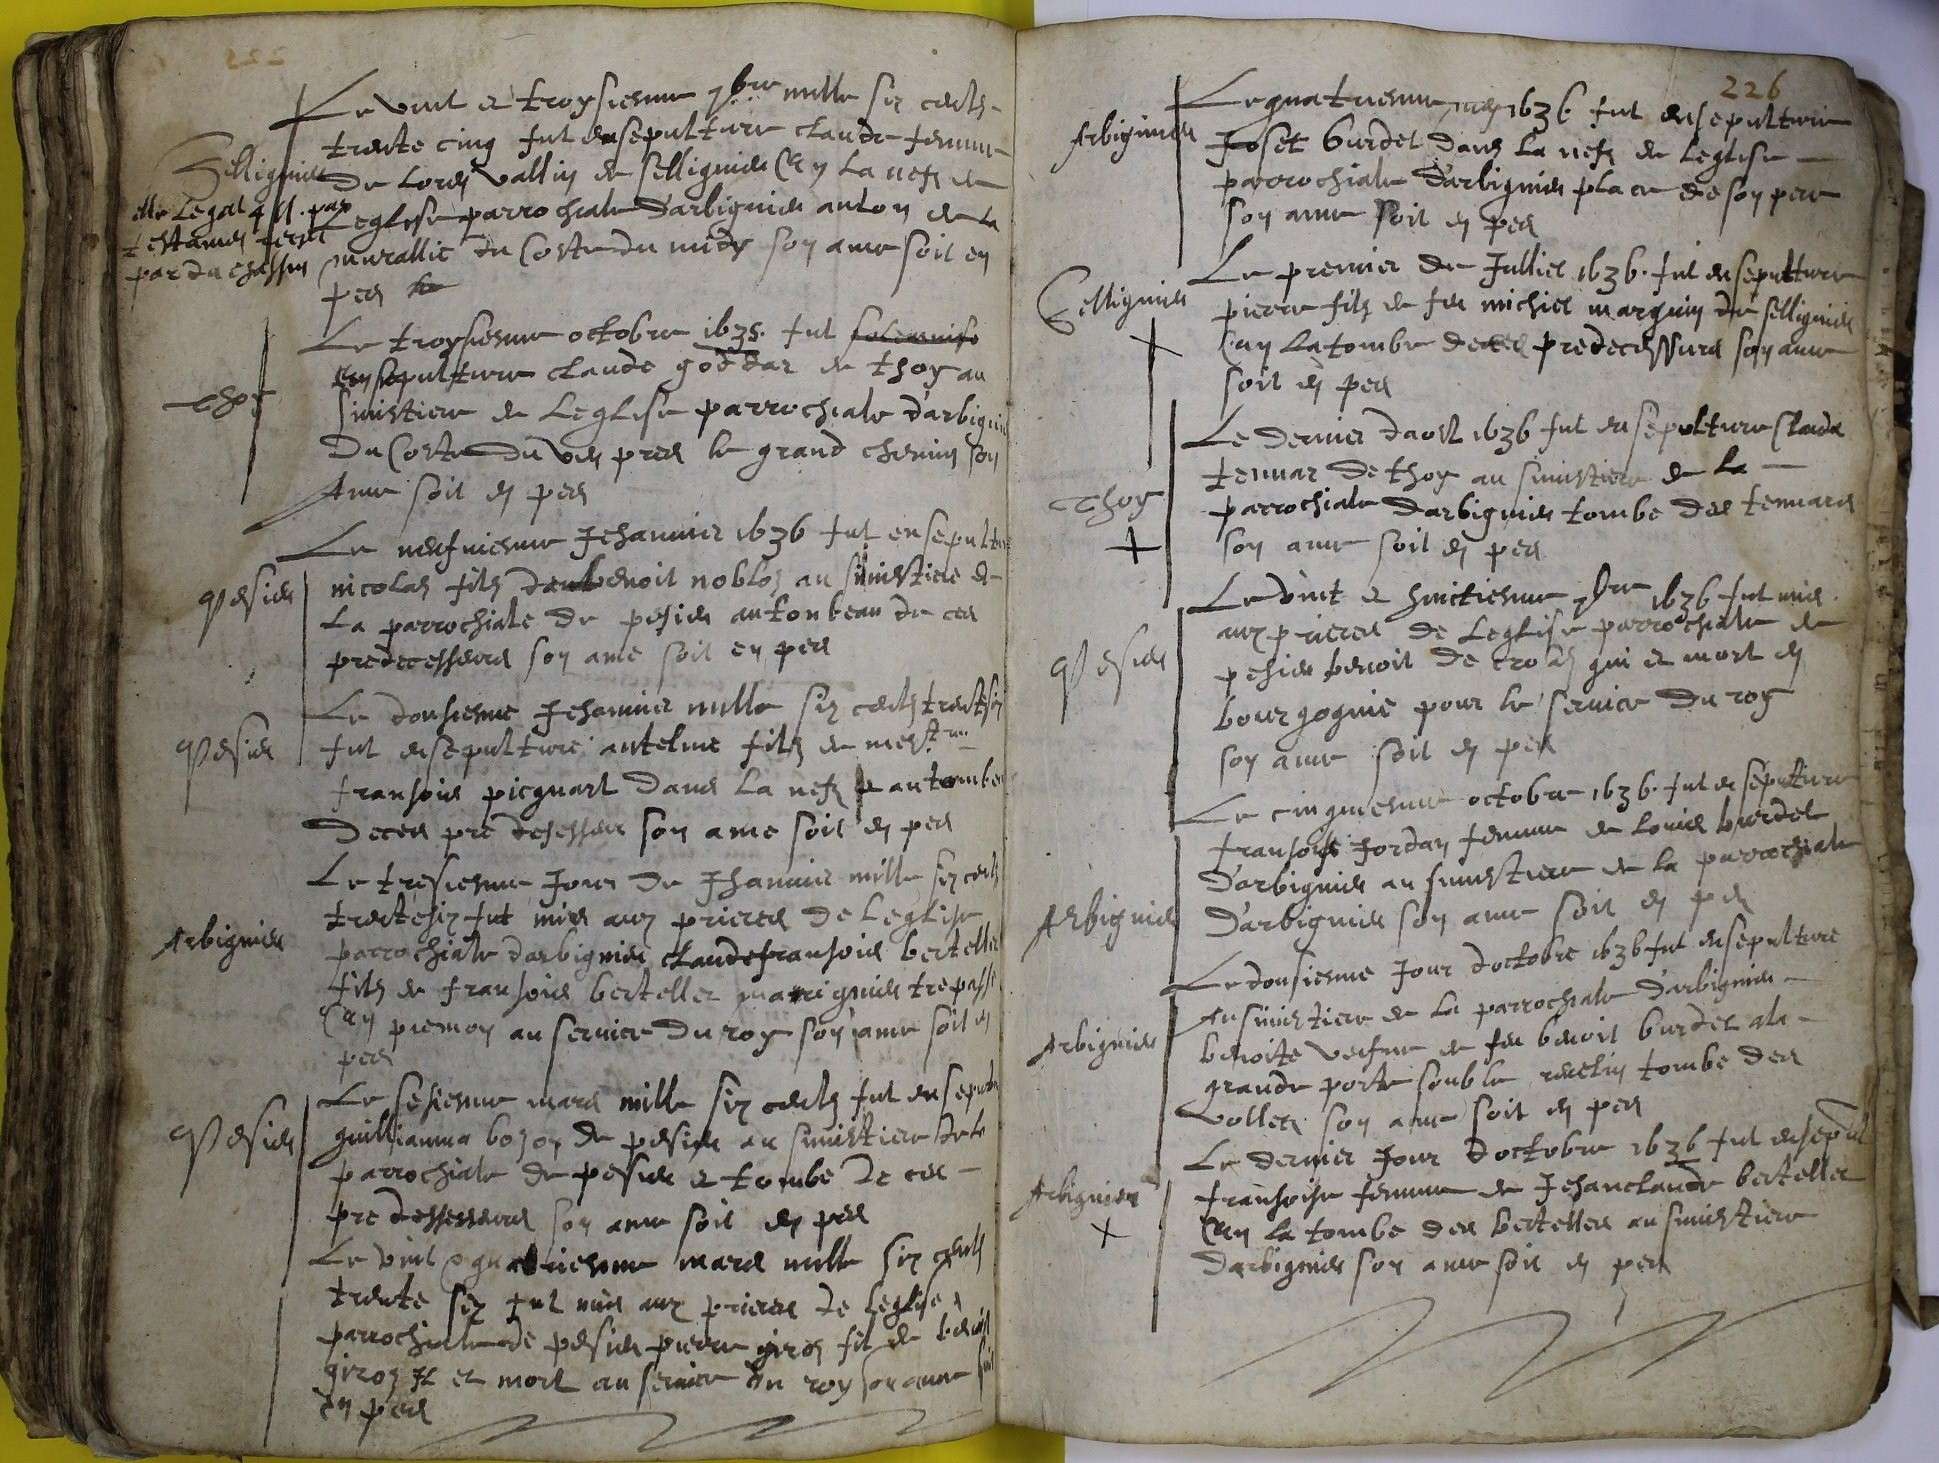 Le vint et troysiesme 7bre mille siz cents
trente cinq fut ensepulture claude femme
de Lorens Vallin de sellignieu En la nefz de
Leglise parrochiale d'arbignieu auton de la
murallie du Coste du midy son ame soit en
pes
Selligneu
elle legat a st. par
testamen receu
par du chassin
Le troysiesme octobre 1635. fut solemnise
Ensepulture claude goddar de thoy au
simistiere de Leglise parrochiale d'arbignieu
Du Coste du ven pres le grand chemin son
Ame soit en pes
Thoy
Le neufviesme Jehanvier 1636 fut ensepulture
nicolas filz de benoit nobloz au simistiere de
La parrochiale de pesieu au tonbeau de ces
predecesseurs son ame soit en pes
Pesieu
Le dousiesme Jehanvier mille siz cents trentesiz
fut ensepulture antelme filz de mestre
fransois picquart Dans La nefz et au tombeau
De ces predesesseurs son ame soit en pes
Pesieu
Le tresiesme Jour de Jhanvier mille siz cents
trentesiz fut mis aux prieres de Leglise
parrochiale darbignieu claudefransois berteller
filz de fransois berteller marrignier trepasse
En piemon au service du roy son ame soit en
pes
Arbignieu
Le sesiesme mars mille siz cents fut ensepulture
guillianma bozon de pesieu au simistiere de la
parrochiale de pesieu et tombe de ces
predessesseurs son ame soit en pes
Pesieu
Le vint & quatriesme mars mille siz cents
trente siz fut mis aux prieres de leglise
parrochialle de pesieu pierre giroz filz de benoit
giroz Il et mort au service du roy son ame soit
En pes
226
Le quatriesme may 1636 fut ensepulture
Joset burdet dans la nefz de leglise
parrochiale d'arbignieu place de son pere
son ame soit en pes
Arbignieu
Le premier de Jullier 1636. fut ensepulture
pierre filz de feu michiel marguin de sellignieu
En La tombe de ces predecesseurs son ame
soit en pes
Sellignieu
Le dernier daost 1636 fut ensepulture Claude
tenuar de thoy au simistiere de la
parrochiale darbignieu tombe des tenuars
son ame soit en pes
Thoy
Le vint et huictiesme 7bre 1636 fut mis
aux prieres de Leglise parrochiale de
pesieu benoit de crolaz qui et mort en
bourgognie pour le service du roy
son ame soit en pes
Pesieu
Le cinquiesme octobre 1636. fut ensepulture
fransoise Jordan femme de louis burdet
d'arbignieu au simistiere de la parrochiale
D'arbignieu son ame soit en pes
Arbignieu
Le dousiesme Jour doctobre 1636 fut ensepulture
Au simistiere de la parrochiale d'arbignieu
benoite veufve de feu benoit burdet a la
grande porte soub le tombe des
vollez son ame soit en pes
Arbignieu
Le dernier Jour doctobre 1636 fut ensepul
fransoise femme de Jehanclaude berteller
En la tombe des bertellers au simistiere
Darbignieu son ame soit en pes
Arbignieu